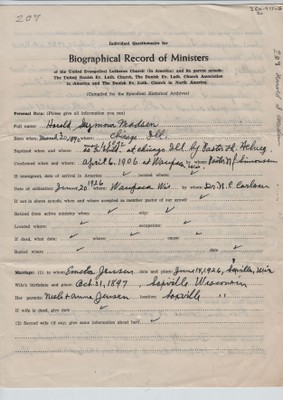 207
Individual Questionnaire for
Biographical Record of Ministers
of the United Evangelical Lutheran Church (in America) and its parent synods:
The United Danish Ev. Luth. Church, The Danish Ev. Luth. Church Association
in America and The Danish Ev. Luth. Church in North America
(Compiled for the Synodical Historical Archives)
Personal Data: (Please give all information you can)
Full name: Harold Seymour Madsen
Born when: March 20, 1890 where: Chicago Ill.
Baptized when and where: at Chicago Ill. by Pastor
Confirmed when and where: April 6, 1906 at Waupaca Wis by whom: Pastor N. J. Simonsen
If immigrant, date of arrival in America: located where:
Date of ordination: June 20, 1926 where: Waupaca Wis. by whom: Dr. N. C. Carlsen
If not in above synods, when and where accepted as member pastor of our synod:
Retired from active ministry when: why:
Located where: occupation:
If dead, what date: where: cause:
Buried where date
Marriage: (1) to whom: Emelia Jensen date and place: June 14, 1926, Saxeville, Wis
Wife's birthdate and place: Oct. 31, 1897 Saxville Wisconsin
Her parents: Niels & Anne Jensen location: Saxville "
If wife is dead, give date
(2) Second wife (if any; give same information about her):